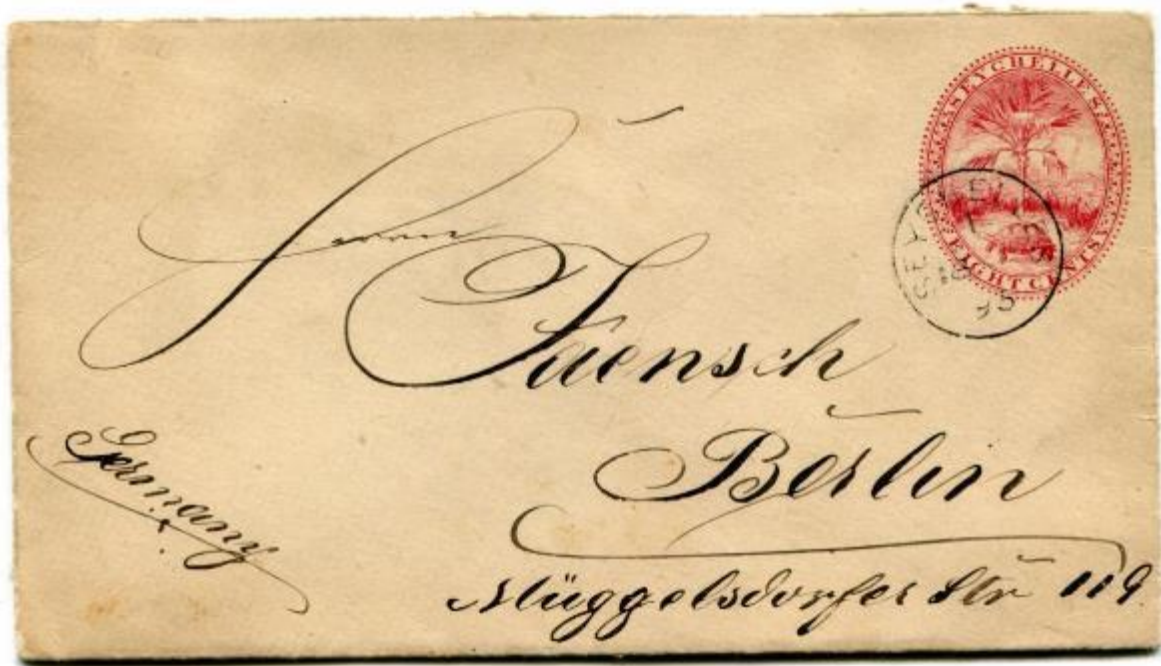 SEYCHELLES
EIGHT CENTS
SEYCHELLES
95
Herrn
Jaensch
Berlin
Germany
Müggelsdorfer Str 119.